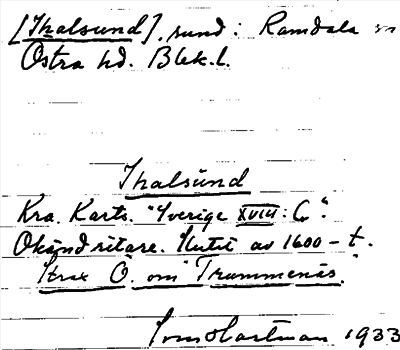 [Thalsund], sund: Ramdala sn
Östra hd. Blek.l.
Thalsünd
Kra. Karts. "Sverige XVIII: C".
Okänd ritare. Slutet av 1600-t.
Strax Ö. om "Trummenäs."
Tom Hartman 1933